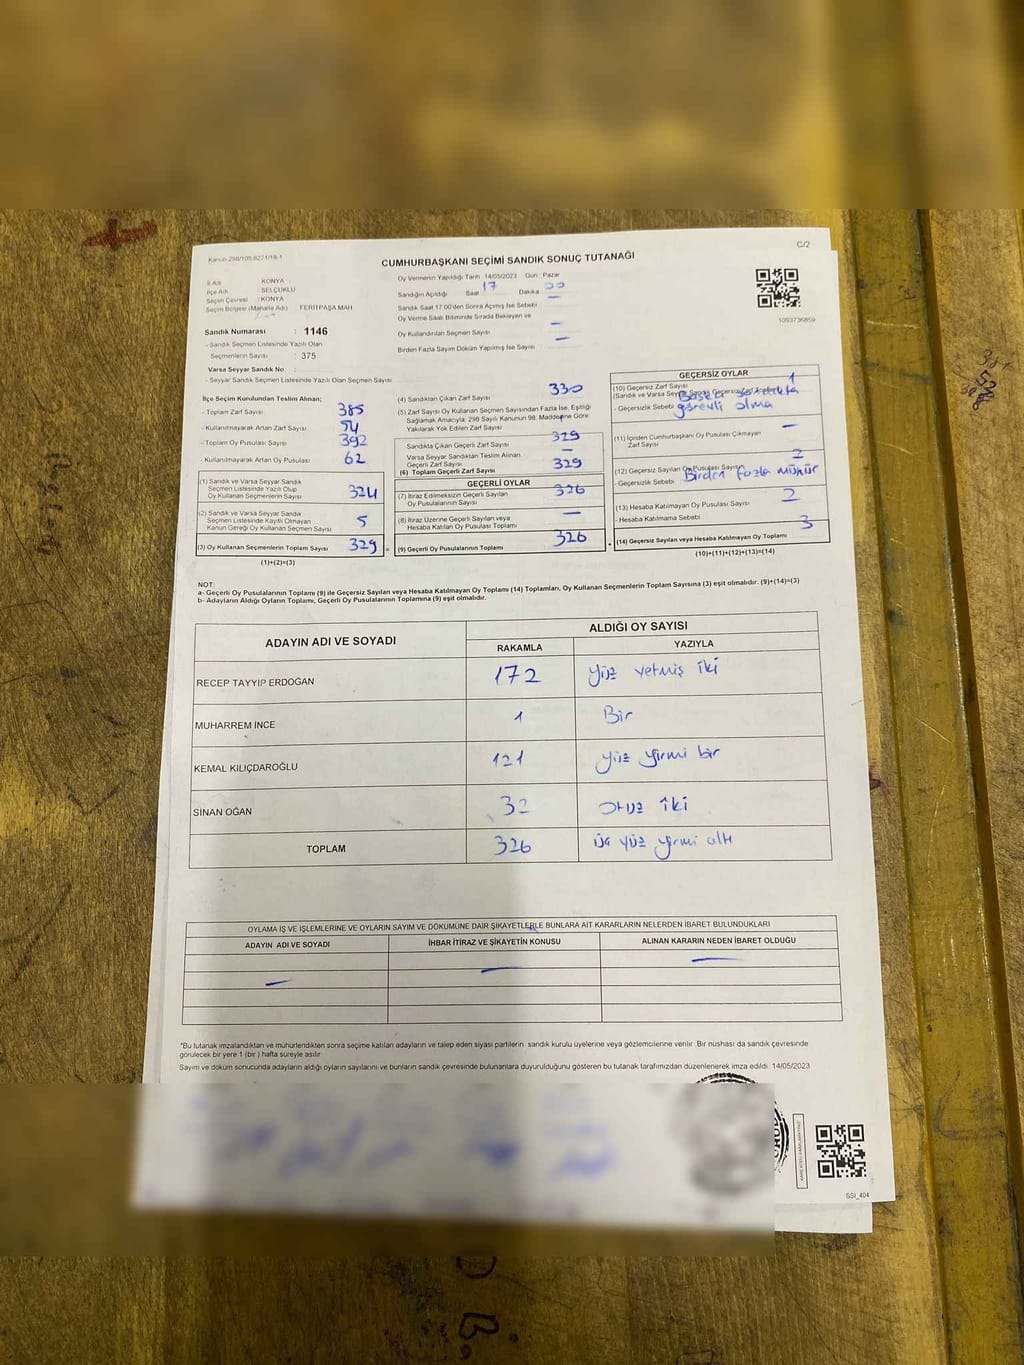 C/2
Kanun:298/105,6271/18-1
CUMHURBAŞKANI SEÇİMİ SANDIK SONUÇ TUTANAĞI
İl Adı KONYA
İlçe Adı SELÇUKLU
Seçim Çevresi : KONYA
Seçim Bölgesi (Mahalle Adı) FERİTPAŞA MAH
Sandık Numarası : 1146
- Sandık Seçmen Listesinde Yazılı Olan
Seçmenlerin Sayısı : 375
Varsa Seyyar Sandık No
- Seyyar Sandık Seçmen Listesinde Yazılı Olan Seçmen Sayısı
Oy Vermenin Yapıldığı Tarih 14/05/2023 Gün : Pazar
Sandığın Açıldığı Saat 17 Dakika 00
Sandık Saat 17.00'den Sonra Açılmış İse Sebebi —
Oy Verme Saati Bitiminde Sırada Bekleyen ve
Oy Kullandırılan Seçmen Sayısı —
Birden Fazla Sayım Döküm Yapılmış İse Sayısı —
1093736859
İlçe Seçim Kurulundan Teslim Alınan;
- Toplam Zarf Sayısı 385
- Kullanılmayarak Artan Zarf Sayısı 54
- Toplam Oy Pusulası Sayısı 392
- Kullanılmayarak Artan Oy Pusulası 62
(1) Sandık ve Varsa Seyyar Sandık
Seçmen Listesinde Yazılı Olup
Oy Kullanan Seçmenlerin Sayısı 324
(2) Sandık ve Varsa Seyyar Sandık
Seçmen Listesinde Kayıtlı Olmayan
Kanun Gereği Oy Kullanan Seçmen Sayısı 5
(3) Oy Kullanan Seçmenlerin Toplam Sayısı 329 =
(1)+(2)=(3)
(4) Sandıktan Çıkan Zarf Sayısı 330
(5) Zarf Sayısı Oy Kullanan Seçmen Sayısından Fazla İse, Eşitliği
Sağlamak Amacıyla, 298 Sayılı Kanunun 98. Maddesine Göre
Yakılarak Yok Edilen Zarf Sayısı
Sandıkta Çıkan Geçerli Zarf Sayısı 329
Varsa Seyyar Sandıktan Teslim Alınan
Geçerli Zarf Sayısı —
(6) Toplam Geçerli Zarf Sayısı 329
GEÇERLİ OYLAR
(7) İtiraz Edilmeksizin Geçerli Sayılan
Oy Pusulalarının Sayısı 326
(8) İtiraz Üzerine Geçerli Sayılan veya
Hesaba Katılan Oy Pusulası Toplamı —
(9) Geçerli Oy Pusulalarının Toplamı 326 +
GEÇERSİZ OYLAR
(10) Geçersiz Zarf Sayısı 1
- Geçersizlik Sebebi görevli olma
(11) İçinden Cumhurbaşkanı Oy Pusulası Çıkmayan
Zarf Sayısı —
(12) Geçersiz Sayılan Oy Pusulası Sayısı 2
- Geçersizlik Sebebi Birden fazla mühür
(13) Hesaba Katılmayan Oy Pusulası Sayısı 2
- Hesaba Katılmama Sebebi
(14) Geçersiz Sayılan veya Hesaba Katılmayan Oy Toplamı 3
(10)+(11)+(12)+(13)=(14)
NOT:
a- Geçerli Oy Pusulasının Toplamı (9) ile Geçersiz Sayılan veya Hesaba Katılmayan Oy Toplamı (14) Toplamları, Oy Kullanan Seçmenlerin Toplam Sayısına (3) eşit olmalıdır. (9)+(14)=(3)
b- Adayların Aldığı Oyların Toplamı, Geçerli Oy Pusulalarının Toplamına (9) eşit olmalıdır.
ADAYIN ADI VE SOYADI ALDIĞI OY SAYISI
RAKAMLA YAZIYLA
RECEP TAYYİP ERDOĞAN 172 Yüz yetmiş iki
MUHARREM İNCE 1 Bir
KEMAL KILIÇDAROĞLU 121 yüz yirmi bir
SİNAN OĞAN 32 otuz iki
TOPLAM 326 üç yüz yirmi altı
OYLAMA İŞ VE İŞLEMLERİNE VE OYLARIN SAYIM VE DÖKÜMÜNE DAİR ŞİKAYETLERLE BUNLARA AİT KARARLARIN NELERDEN İBARET BULUNDUKLARI
ADAYIN ADI VE SOYADI İHBAR İTİRAZ VE ŞİKAYETİN KONUSU ALINAN KARARIN NEDEN İBARET OLDUĞU
— — —
*Bu tutanak imzalandıktan ve mühürlendikten sonra seçime katılan adayların ve talep eden siyasi partilerin sandık kurulu üyelerine veya gözlemcilerine verilir. Bir nüshası da sandık çevresinde
görülecek bir yere 1 (bir ) hafta süreyle asılır
Sayım ve döküm sonucunda adayların aldığı oyların sayılarını ve bunların sandık çevresinde bulunanlara duyurulduğunu gösteren bu tutanak tarafımızdan düzenlenerek imza edildi. 14/05/2023
SSI_404